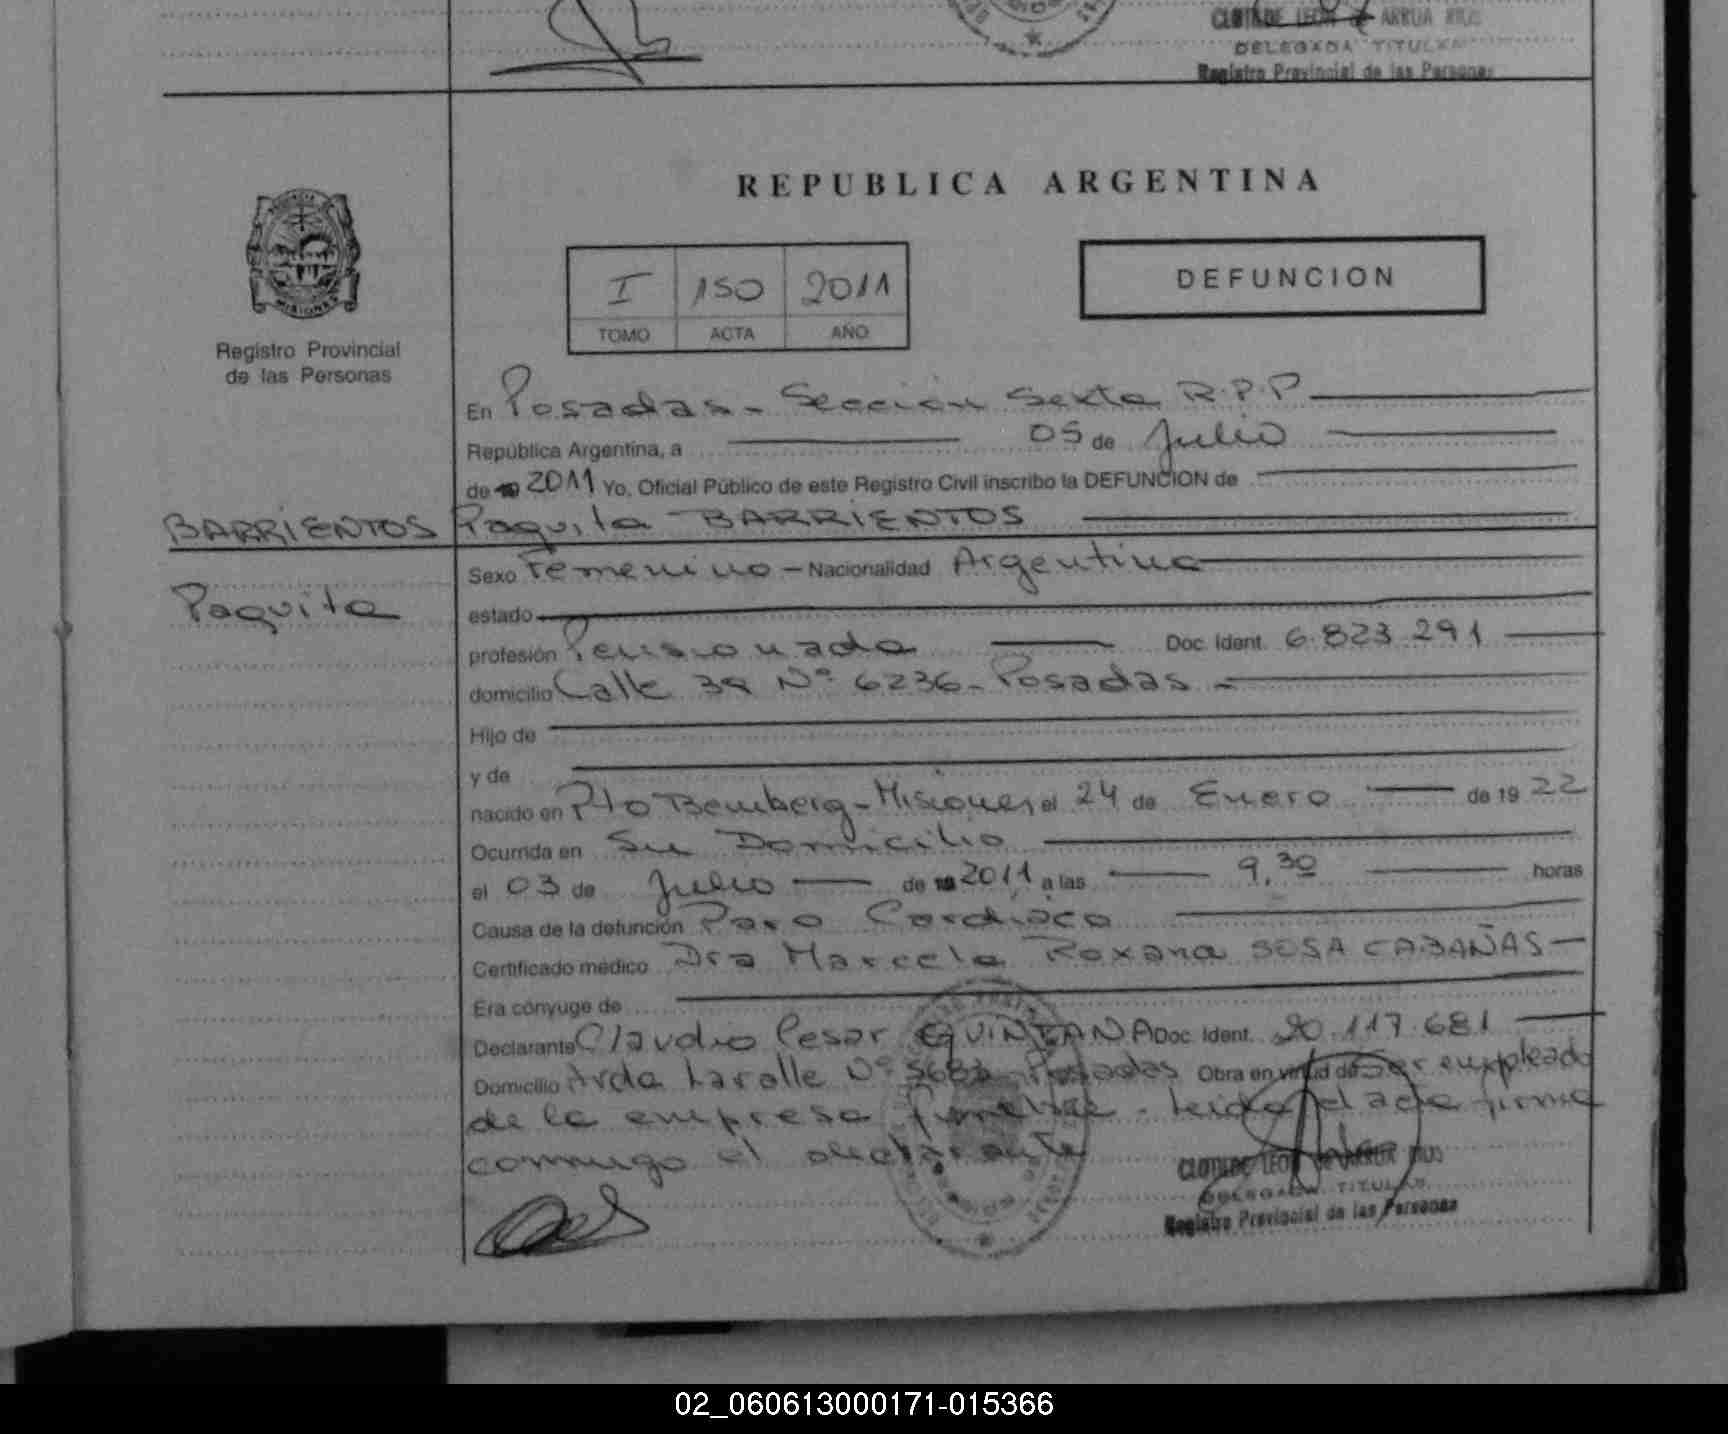 CLOTILDE LEON de ARRUA RIOS
DELEGADA TITULAR
Registro Provincial de las Personas
REPUBLICA ARGENTINA
MISIONES
Registro Provincial
de las Personas
I 150 2011
TOMO ACTA AÑO
DEFUNCION
En Posadas - Sección Sexta R.P.P
República Argentina, a 05 de Julio
de 19 2011 Yo, Oficial Público de este Registro Civil inscribo la DEFUNCION de
BARRIENTOS Paquita BARRIENTOS
Paquita
Sexo Femenino - Nacionalidad Argentina
estado
profesión Pensionada Doc. Ident. 6.823.291
domicilio Calle 39 Nº 6236 - Posadas -
Hijo de
y de
nacido en Pto Bemberg - Misiones el 24 de Enero de 19 22
Ocurrida en Su Domicilio
el 03 de Julio de 19 2011 a las 9,30 horas
Causa de la defunción Paro Cardiaco
Certificado médico Dra Marcela Roxana SOSA CABAÑAS
Era cónyuge de
Declarante Claudio Cesar QUINTANA Doc. Ident. 20.117.681
Domicilio Avda Lavalle Nº Posadas Obra en virtud de Ser empleado
de la empresa funebre. Leida el acta firma
conmigo el declarante
CLOTILDE LEON de ARRUA RIOS
DELEGADA TITULAR
Registro Provincial de las Personas
02_060613000171-015366